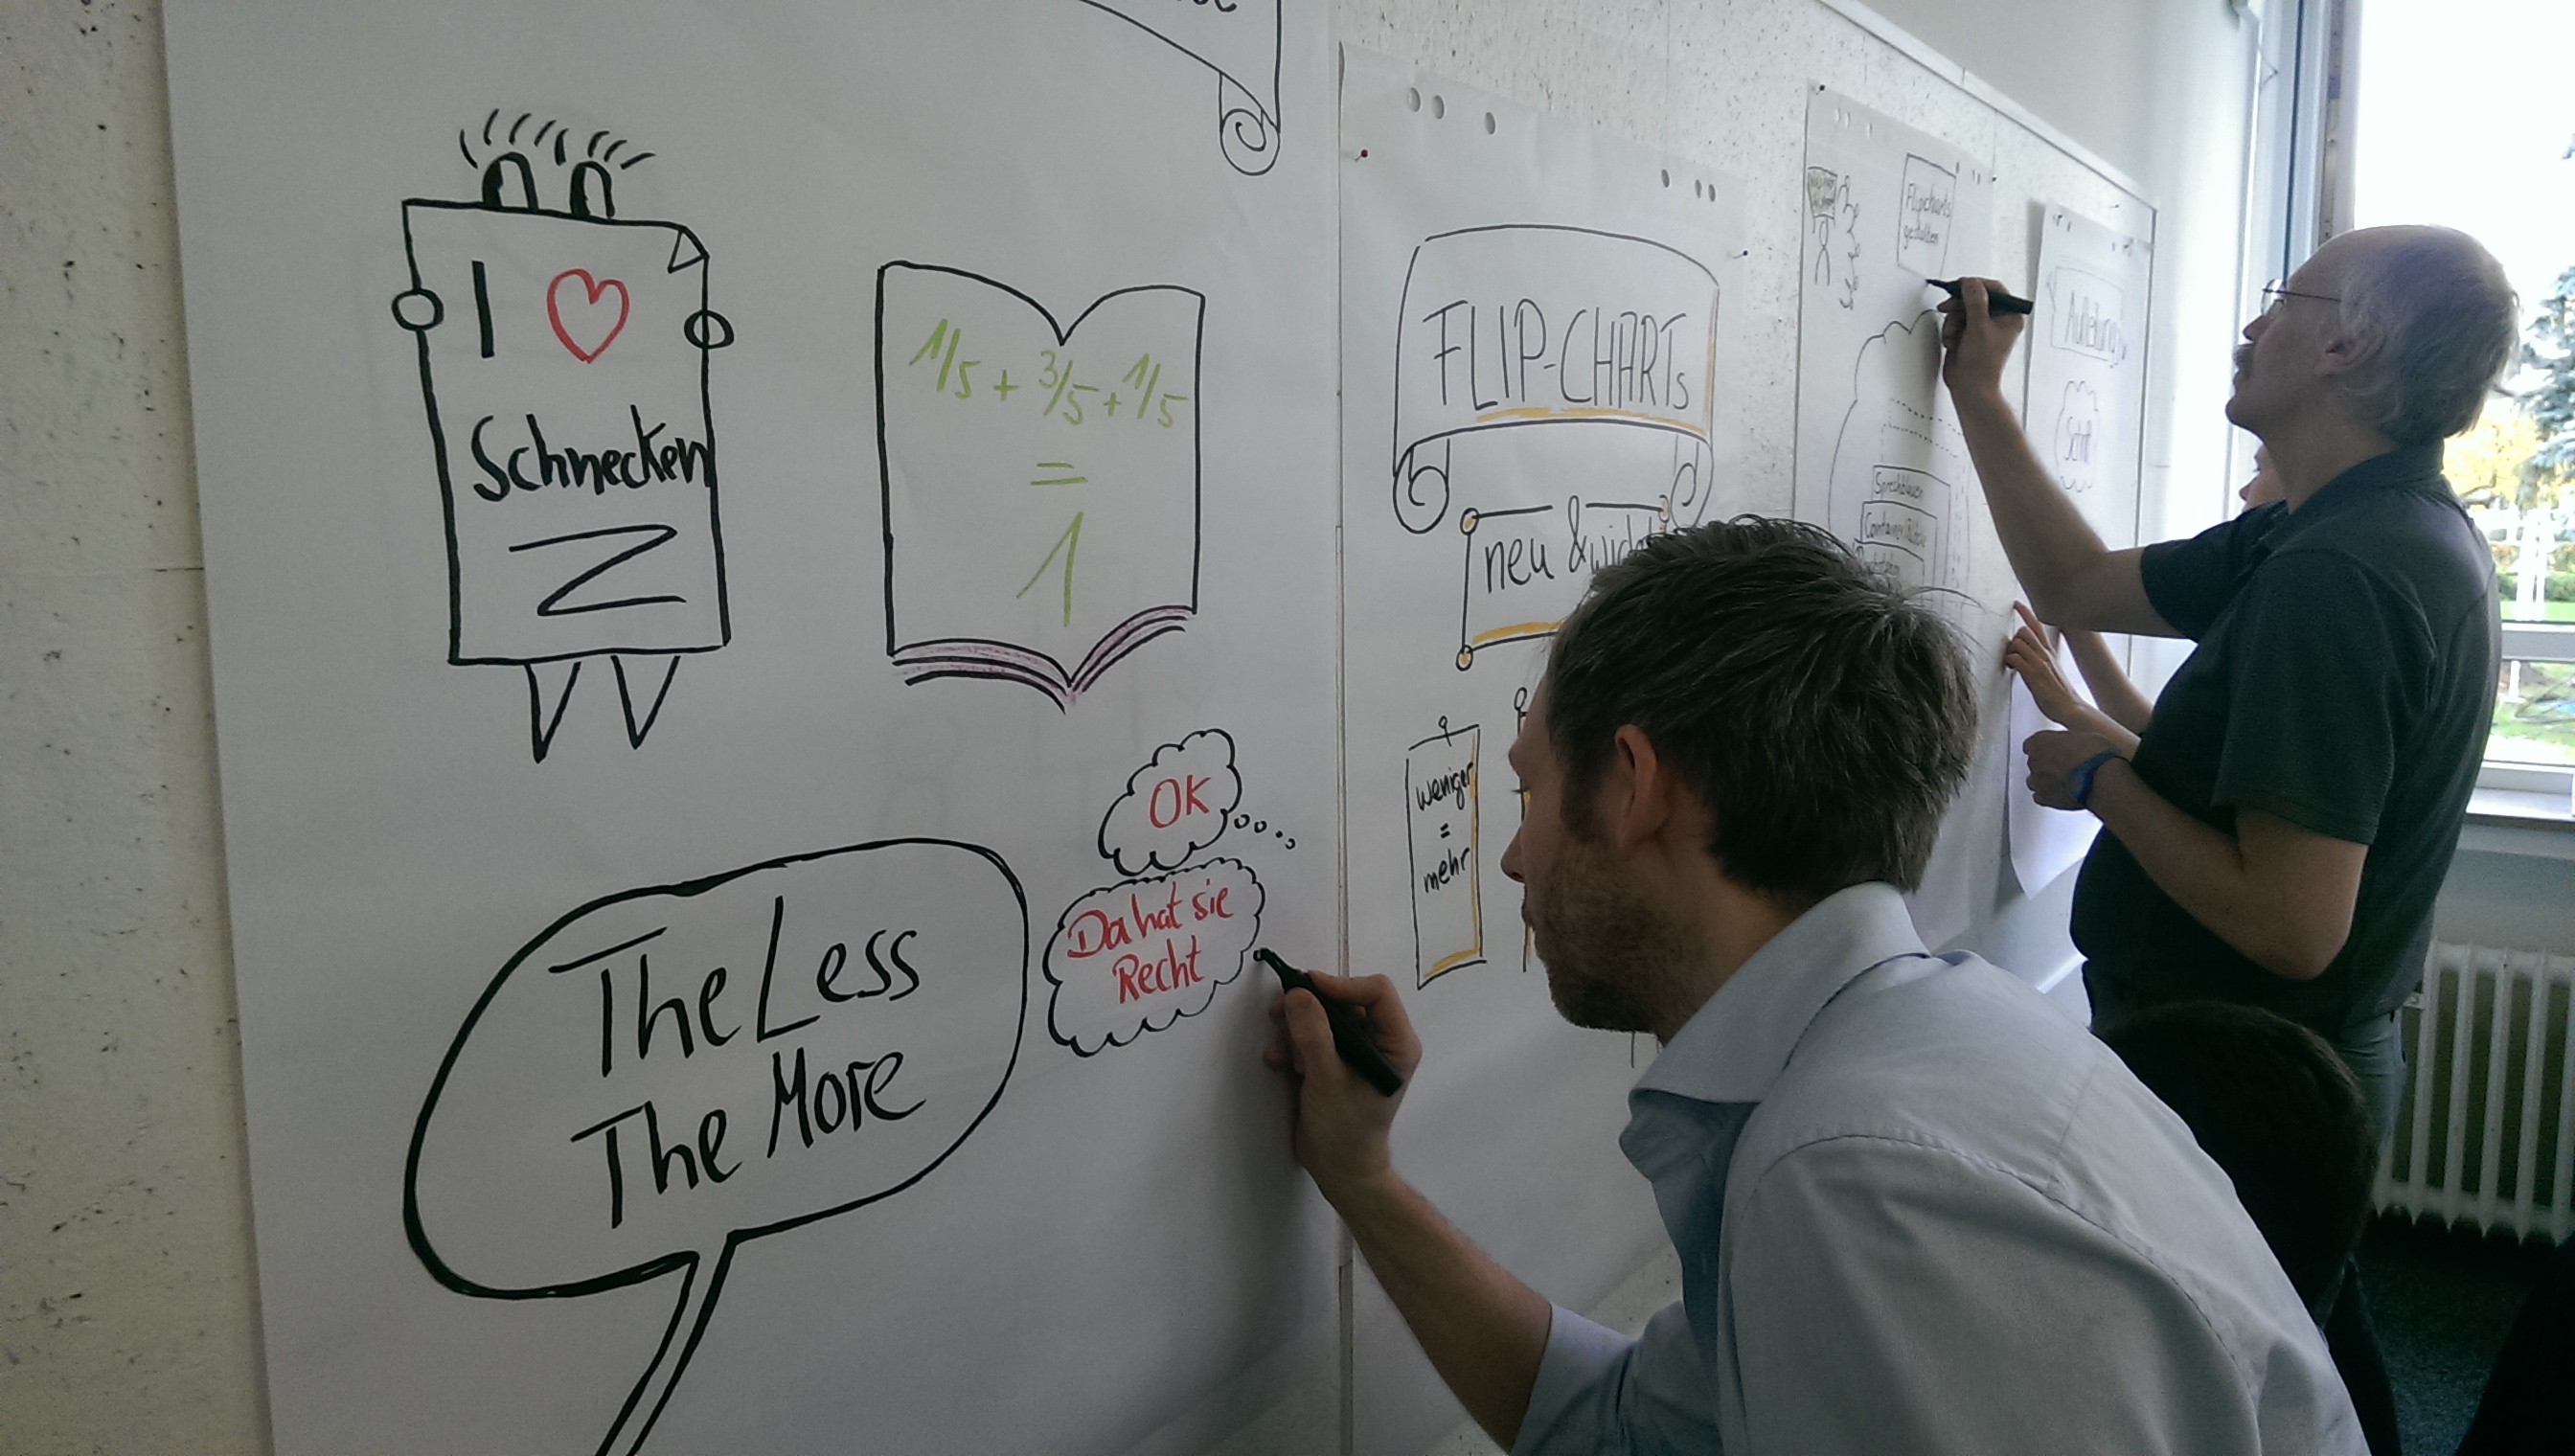 I ♡
Schnecken
1/5 + 3/5 + 1/5
=
1
OK
Da hat sie
Recht
The Less
The More
FLIP-CHARTs
neu &
weniger
=
mehr
Flipcharts
gestalten
Sprechblasen
Container
Schrift